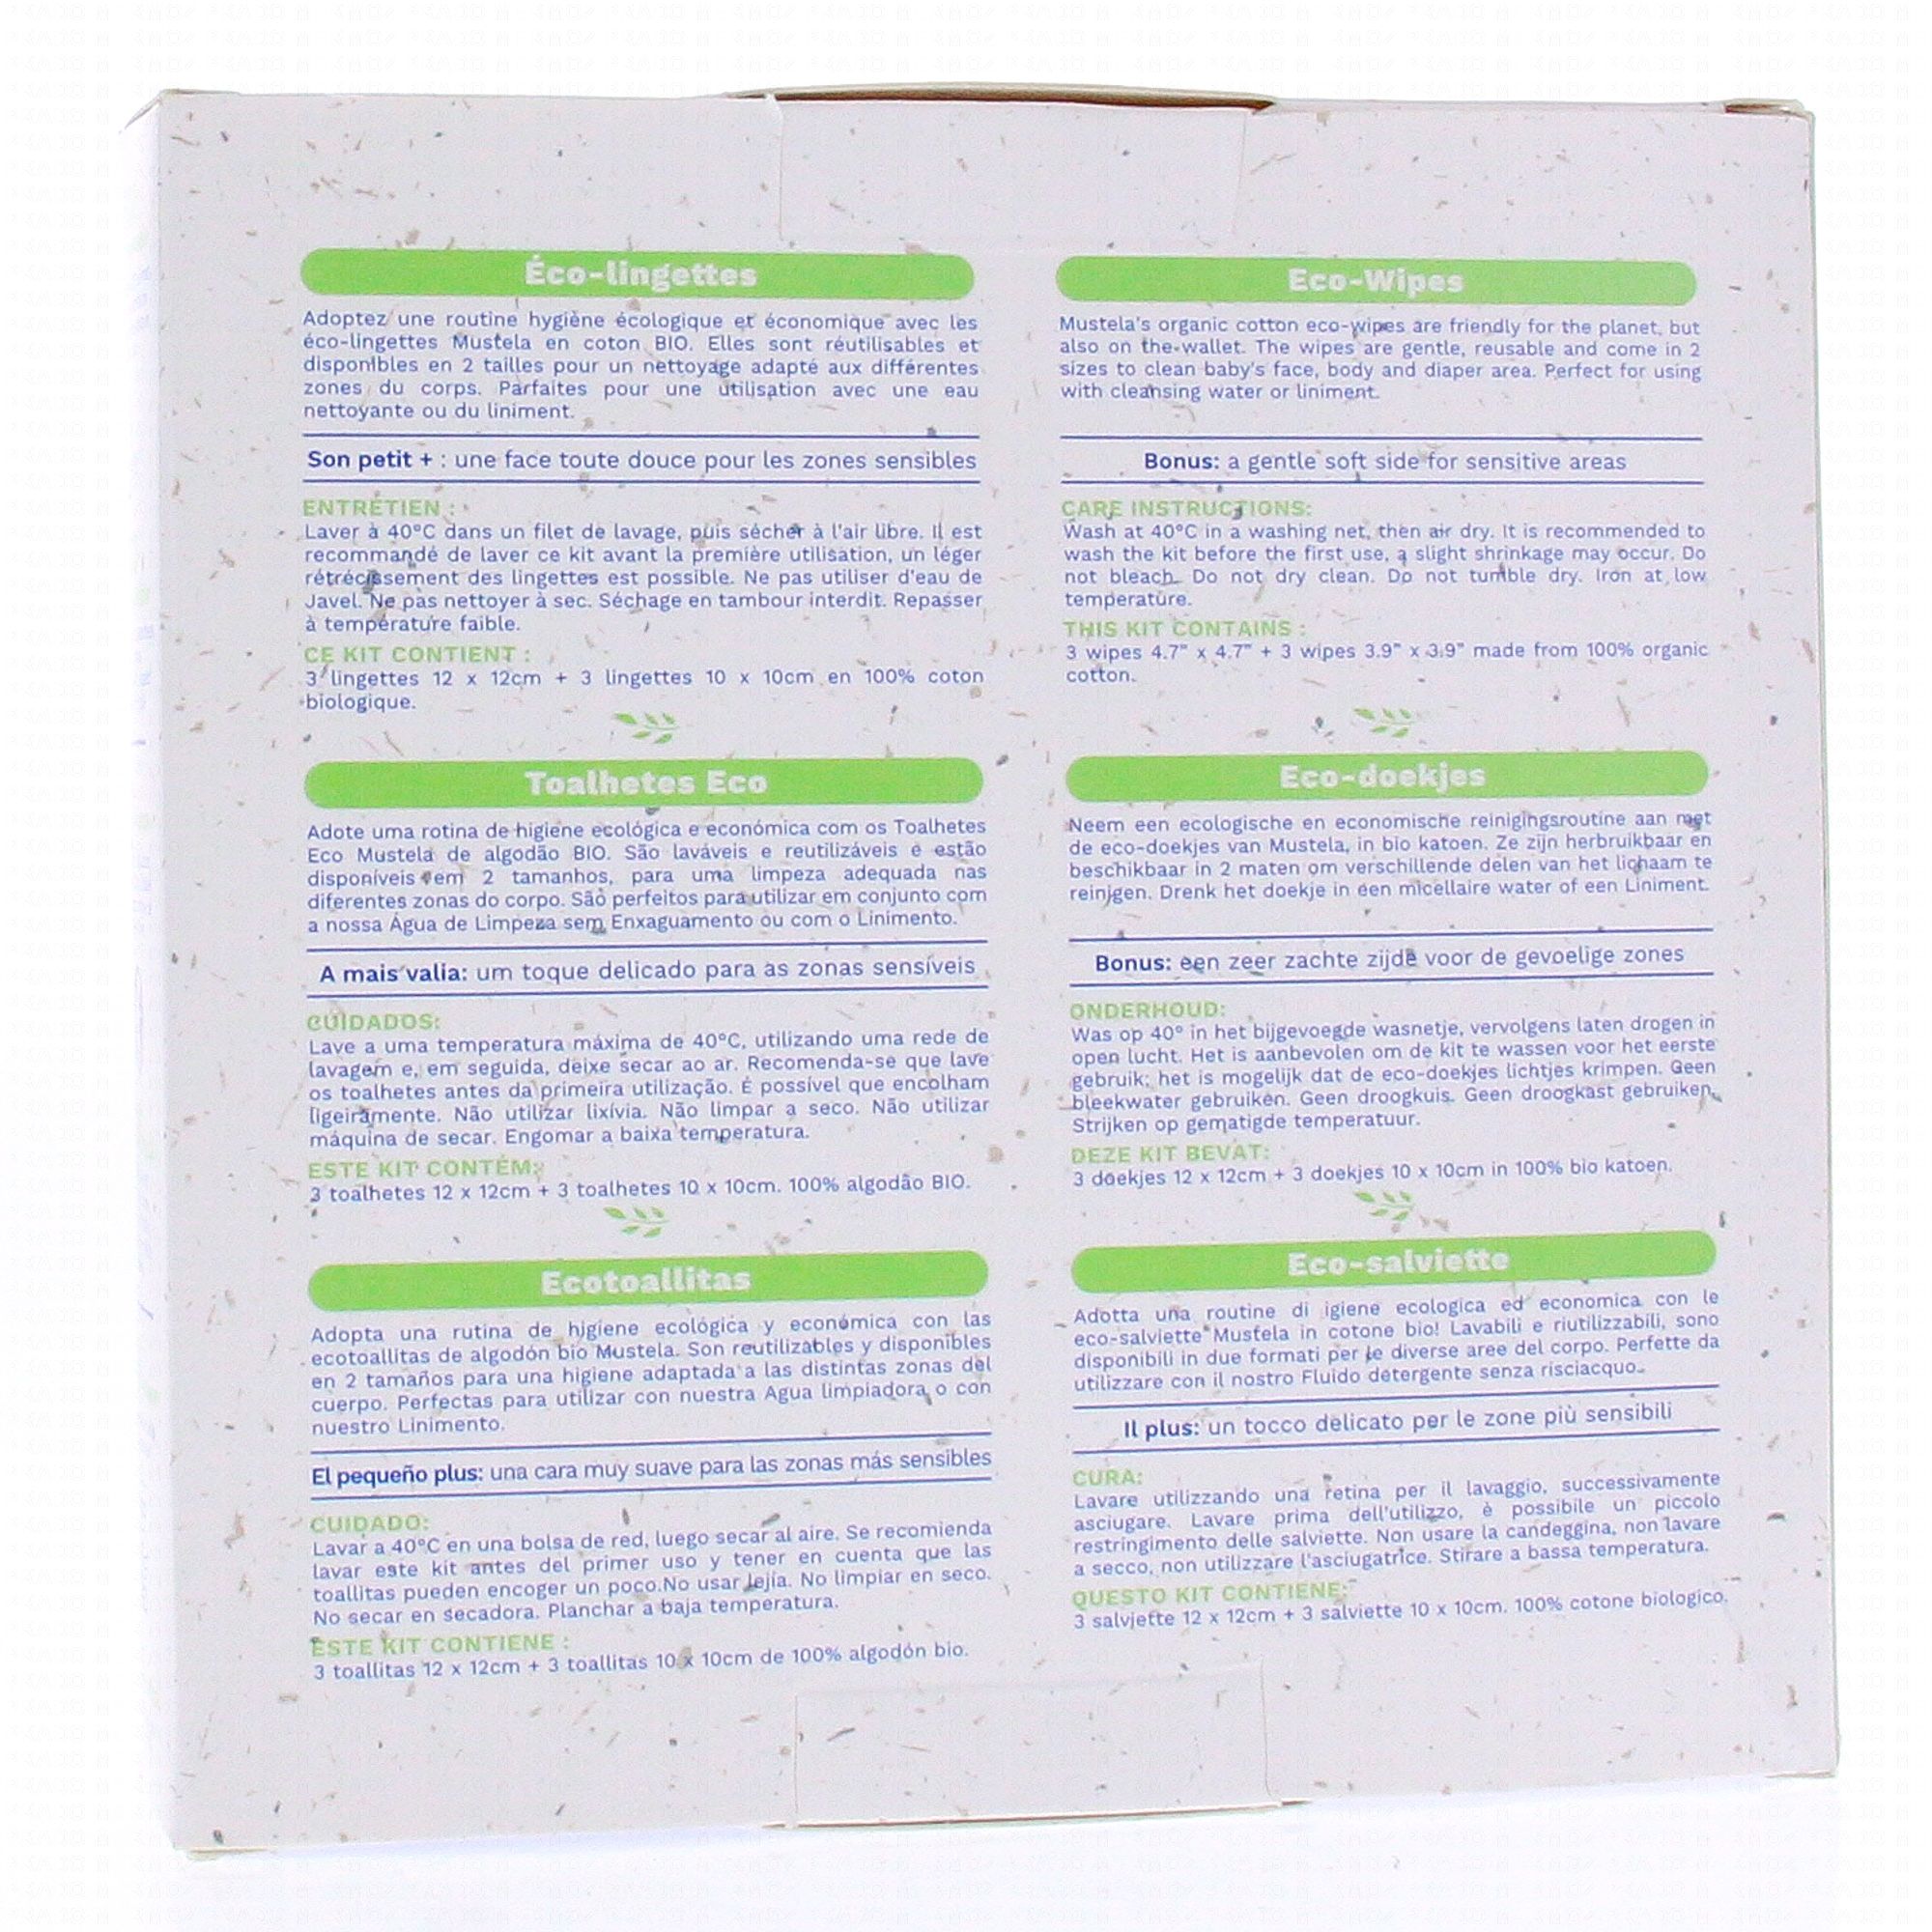 Éco-lingettes
Adoptez une routine hygiène écologique et économique avec les
éco-lingettes Mustela en coton BIO. Elles sont réutilisables et
disponibles en 2 tailles pour un nettoyage adapté aux différentes
zones du corps. Parfaites pour une utilisation avec une eau
nettoyante ou du liniment.
Son petit + : une face toute douce pour les zones sensibles
ENTRETIEN :
Laver à 40°C dans un filet de lavage, puis sécher à l'air libre. Il est
recommandé de laver ce kit avant la première utilisation, un léger
rétrécissement des lingettes est possible. Ne pas utiliser d'eau de
Javel. Ne pas nettoyer à sec. Séchage en tambour interdit. Repasser
à température faible.
CE KIT CONTIENT :
3 lingettes 12 x 12cm + 3 lingettes 10 x 10cm en 100% coton
biologique.
Eco-Wipes
Mustela's organic cotton eco-wipes are friendly for the planet, but
also on the wallet. The wipes are gentle, reusable and come in 2
sizes to clean baby's face, body and diaper area. Perfect for using
with cleansing water or liniment.
Bonus: a gentle soft side for sensitive areas
CARE INSTRUCTIONS:
Wash at 40°C in a washing net, then air dry. It is recommended to
wash the kit before the first use, a slight shrinkage may occur. Do
not bleach. Do not dry clean. Do not tumble dry. Iron at low
temperature.
THIS KIT CONTAINS :
3 wipes 4.7" x 4.7" + 3 wipes 3.9" x 3.9" made from 100% organic
cotton.
Toalhetes Eco
Adote uma rotina de higiene ecológica e económica com os Toalhetes
Eco Mustela de algodão BIO. São laváveis e reutilizáveis e estão
disponíveis em 2 tamanhos, para uma limpeza adequada nas
diferentes zonas do corpo. São perfeitos para utilizar em conjunto com
a nossa Água de Limpeza sem Enxaguamento ou com o Linimento.
A mais valia: um toque delicado para as zonas sensíveis
CUIDADOS:
Lave a uma temperatura máxima de 40°C, utilizando uma rede de
lavagem e, em seguida, deixe secar ao ar. Recomenda-se que lave
os toalhetes antes da primeira utilização. É possível que encolham
ligeiramente. Não utilizar lixívia. Não limpar a seco. Não utilizar
máquina de secar. Engomar a baixa temperatura.
ESTE KIT CONTÉM:
3 toalhetes 12 x 12cm + 3 toalhetes 10 x 10cm. 100% algodão BIO.
Eco-doekjes
Neem een ecologische en economische reinigingsroutine aan met
de eco-doekjes van Mustela, in bio katoen. Ze zijn herbruikbaar en
beschikbaar in 2 maten om verschillende delen van het lichaam te
reinigen. Drenk het doekje in een micellaire water of een Liniment.
Bonus: een zeer zachte zijde voor de gevoelige zones
ONDERHOUD:
Was op 40° in het bijgevoegde wasnetje, vervolgens laten drogen in
open lucht. Het is aanbevolen om de kit te wassen voor het eerste
gebruik; het is mogelijk dat de eco-doekjes lichtjes krimpen. Geen
bleekwater gebruiken. Geen droogkuis. Geen droogkast gebruiken.
Strijken op gematigde temperatuur.
DEZE KIT BEVAT:
3 doekjes 12 x 12cm + 3 doekjes 10 x 10cm in 100% bio katoen.
Ecotoallitas
Adopta una rutina de higiene ecológica y económica con las
ecotoallitas de algodón bio Mustela. Son reutilizables y disponibles
en 2 tamaños para una higiene adaptada a las distintas zonas del
cuerpo. Perfectas para utilizar con nuestra Agua limpiadora o con
nuestro Linimento.
El pequeño plus: una cara muy suave para las zonas más sensibles
CUIDADO:
Lavar a 40°C en una bolsa de red, luego secar al aire. Se recomienda
lavar este kit antes del primer uso y tener en cuenta que las
toallitas pueden encoger un poco.No usar lejía. No limpiar en seco.
No secar en secadora. Planchar a baja temperatura.
ESTE KIT CONTIENE :
3 toallitas 12 x 12cm + 3 toallitas 10 x 10cm de 100% algodón bio.
Eco-salviette
Adotta una routine di igiene ecologica ed economica con le
eco-salviette Mustela in cotone bio! Lavabili e riutilizzabili, sono
disponibili in due formati per le diverse aree del corpo. Perfette da
utilizzare con il nostro Fluido detergente senza risciacquo.
Il plus: un tocco delicato per le zone più sensibili
CURA:
Lavare utilizzando una retina per il lavaggio, successivamente
asciugare. Lavare prima dell'utilizzo, è possibile un piccolo
restringimento delle salviette. Non usare la candeggina, non lavare
a secco, non utilizzare l'asciugatrice. Stirare a bassa temperatura.
QUESTO KIT CONTIENE:
3 salviette 12 x 12cm + 3 salviette 10 x 10cm. 100% cotone biologico.